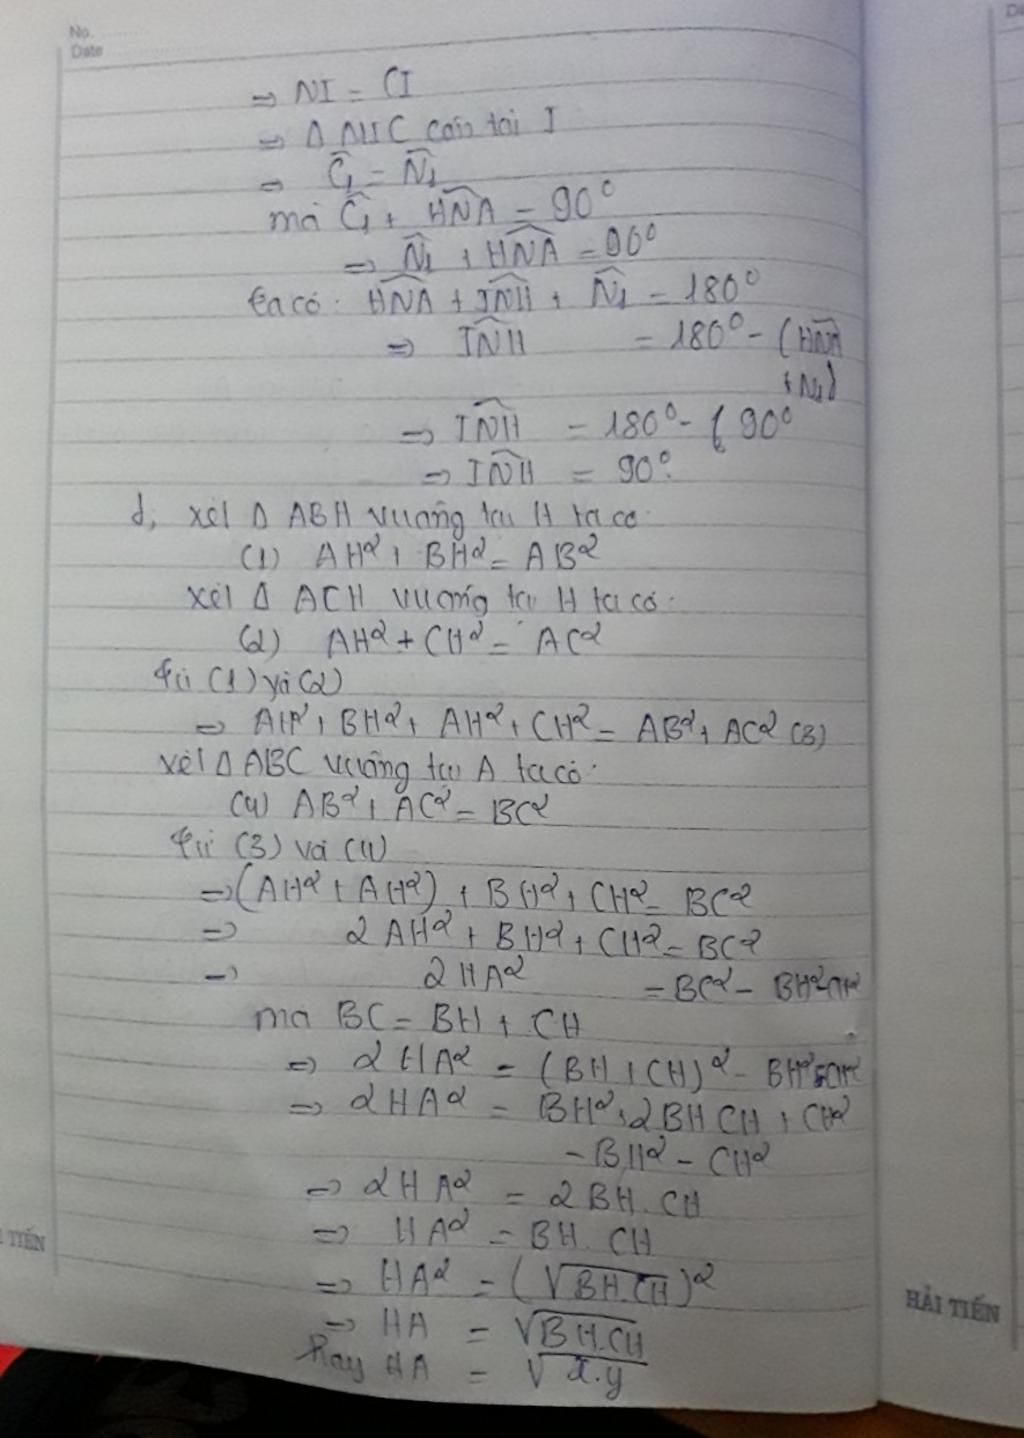 No.
Date
⇒ NI = CI
⇒ Δ NIC cân tại I
⇒ Ĉ₁ = N̂₁
mà Ĉ₁ + HNA = 90⁰
⇒ N̂₁ + HNA = 90⁰
ta có: HNA + INH + N̂₁ = 180⁰
⇒ INH = 180⁰ - (HNA
+ N̂₁)
⇒ INH = 180⁰ - ( 90⁰
⇒ INH = 90⁰.
d, xét Δ ABH vuông tại H ta có:
(1) AH² + BH² = AB²
xét Δ ACH vuông tại H ta có:
(2) AH² + CH² = AC²
Từ (1) và (2)
⇒ AH² + BH² + AH² + CH² = AB² + AC² (3)
xét Δ ABC vuông tại A ta có:
(4) AB² + AC² = BC²
Từ (3) và (4)
⇒ (AH² + AH²) + BH² + CH² = BC²
⇒ 2 AH² + BH² + CH² = BC²
⇒ 2 HA² = BC² - BH² CH²
mà BC = BH + CH
⇒ 2 HA² = (BH + CH)² - BH² - CH²
⇒ 2 HA² = BH² + 2 BH CH + CH²
- BH² - CH²
⇒ 2 HA² = 2 BH. CH
⇒ HA² = BH. CH
⇒ HA² = (√BH.CH)²
⇒ HA = √BH.CH
hay HA = √x.y
TIẾN
HẢI TIẾN